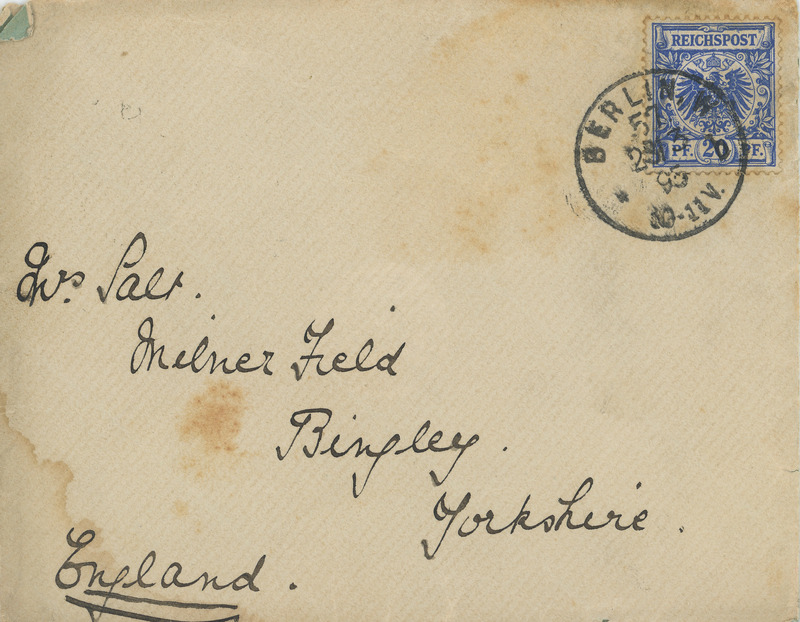 REICHSPOST
PF. 20 PF.
BERLIN, W
57
95
10-11V.
Mrs. Salt.
Milner Field
Bingley.
Yorkshire.
England.